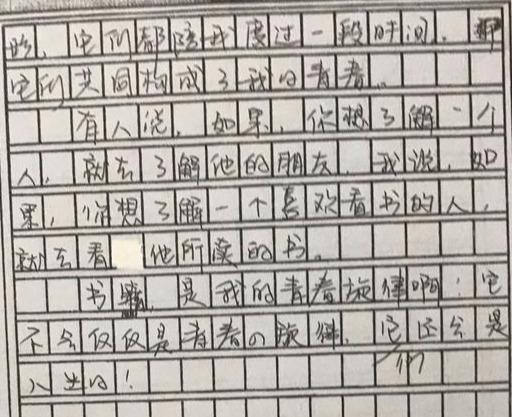 的，它们都陪我度过一段时间，
它们共同构成了我的青春。
有人说，如果，你想了解一个
人，就去了解他的朋友，我说，如
果，你想了解一个喜欢看书的人，
就去看他所读的书。
书是我的青春旋律啊！它
不会仅仅是青春的旋律，它们还会是
人生的！